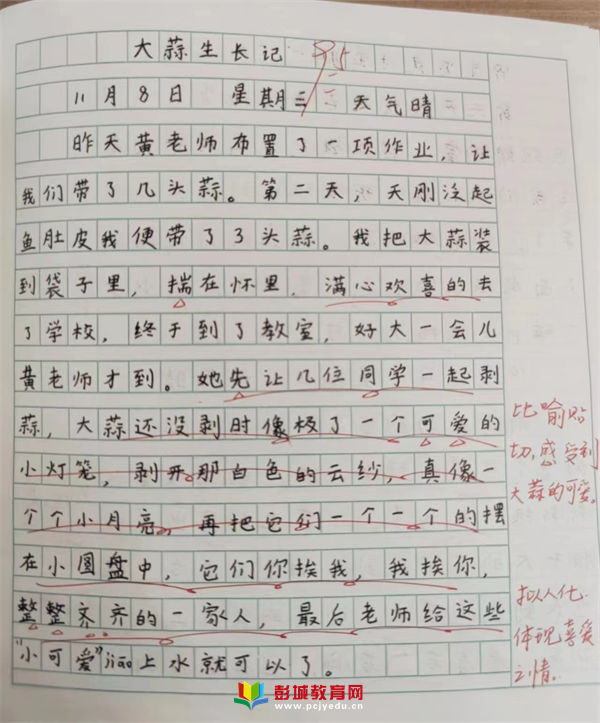 大蒜生长记 95
11月8日 星期三 天气晴
昨天黄老师布置了一项作业，让
我们带了几头蒜。第二天，天刚泛起
鱼肚皮我便带了3头蒜。我把大蒜装
到袋子里，揣在怀里，满心欢喜的去
了学校，终于到了教室，好大一会儿
黄老师才到。她先让几位同学一起剥
蒜，大蒜还没剥时像极了一个可爱的
小灯笼，剥开那白色的云纱，真像一
个个小月亮。再把它们一个一个的摆
在小圆盘中，它们你挨我，我挨你，
整整齐齐的一家人，最后老师给这些
“小可爱”jiāo上水就可以了。
比喻贴
切，感受到
大蒜的可爱。
拟人化
体现喜爱
之情。
彭城教育网
www.pcjyedu.cn